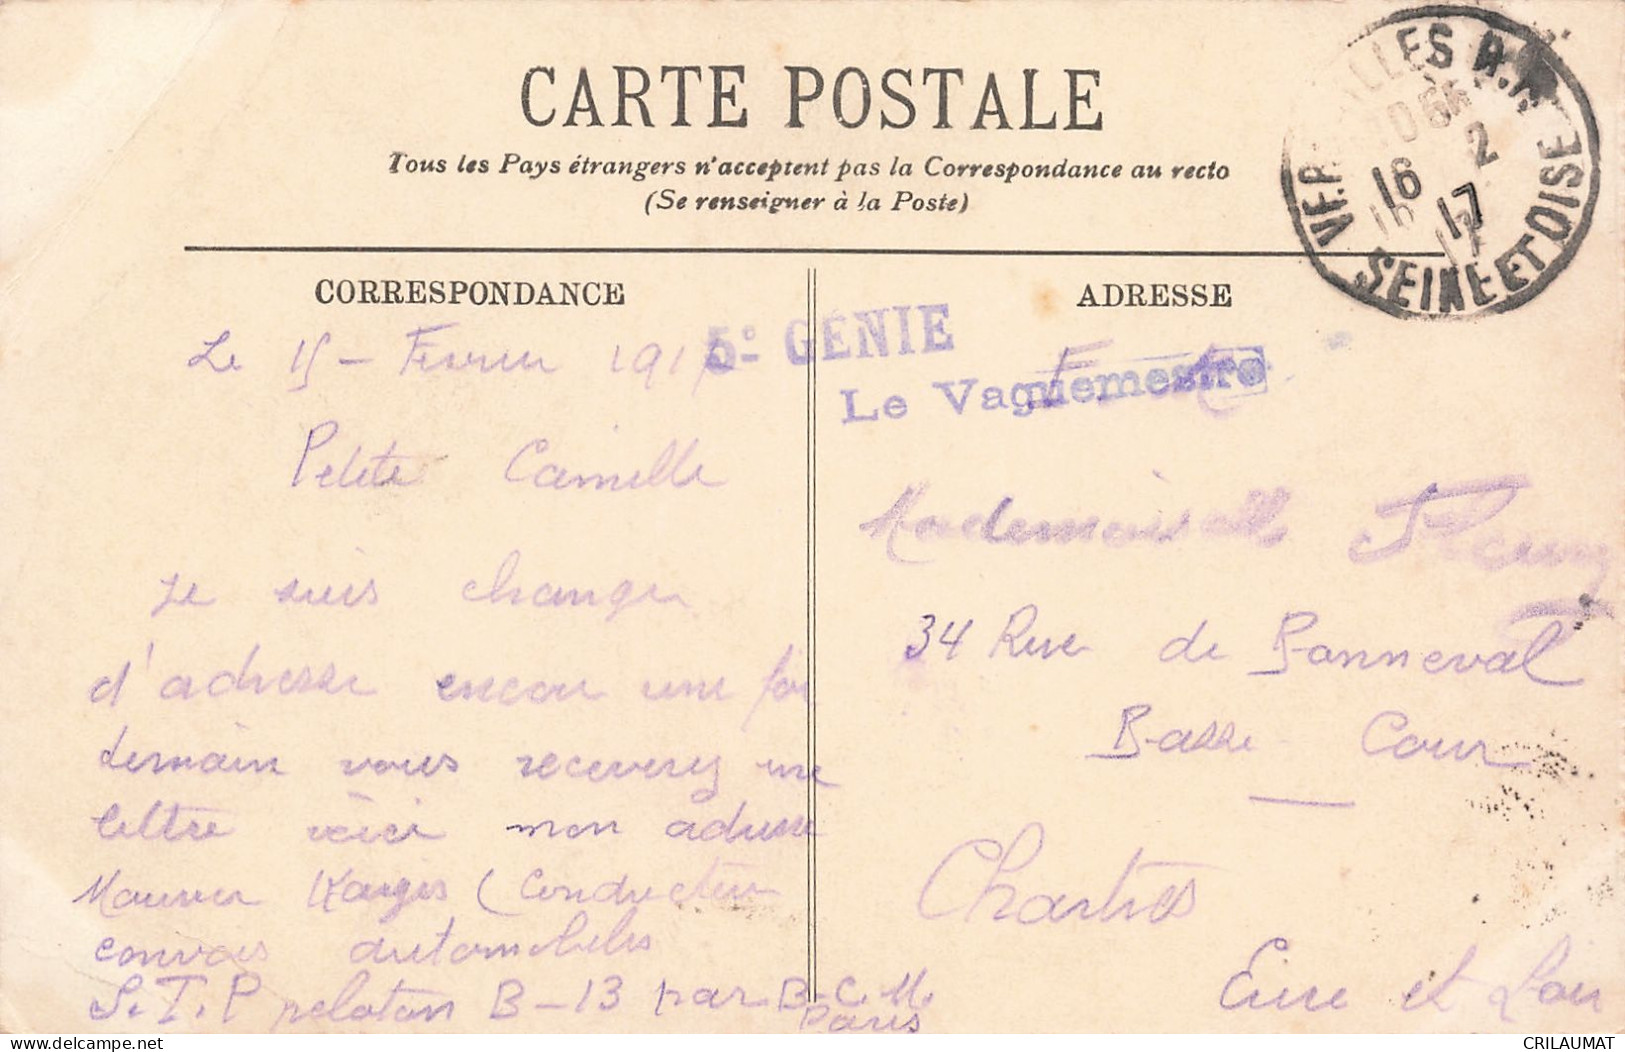 CARTE POSTALE
Tous les Pays étrangers n'acceptent pas la Correspondance au recto
(Se renseigner à la Poste)
SEINE ET OISE
16 2
17
CORRESPONDANCE
Le 15 - Fevrier 1917
Petite Camille
Je suis changer
d'adresse encore une foi
demain vous receverez une
lettre voici mon adresse
Maurice (Conducteur
convois automobiles
S.T.P peloton B-13 par B.C.M.
Paris
5e GÉNIE
Le Vaguemestre
ADRESSE
F.M
Mademoiselle
34 Rue de Bonneval
Basse Cour
Chartres
Eure et Loir
CRILAUMAT